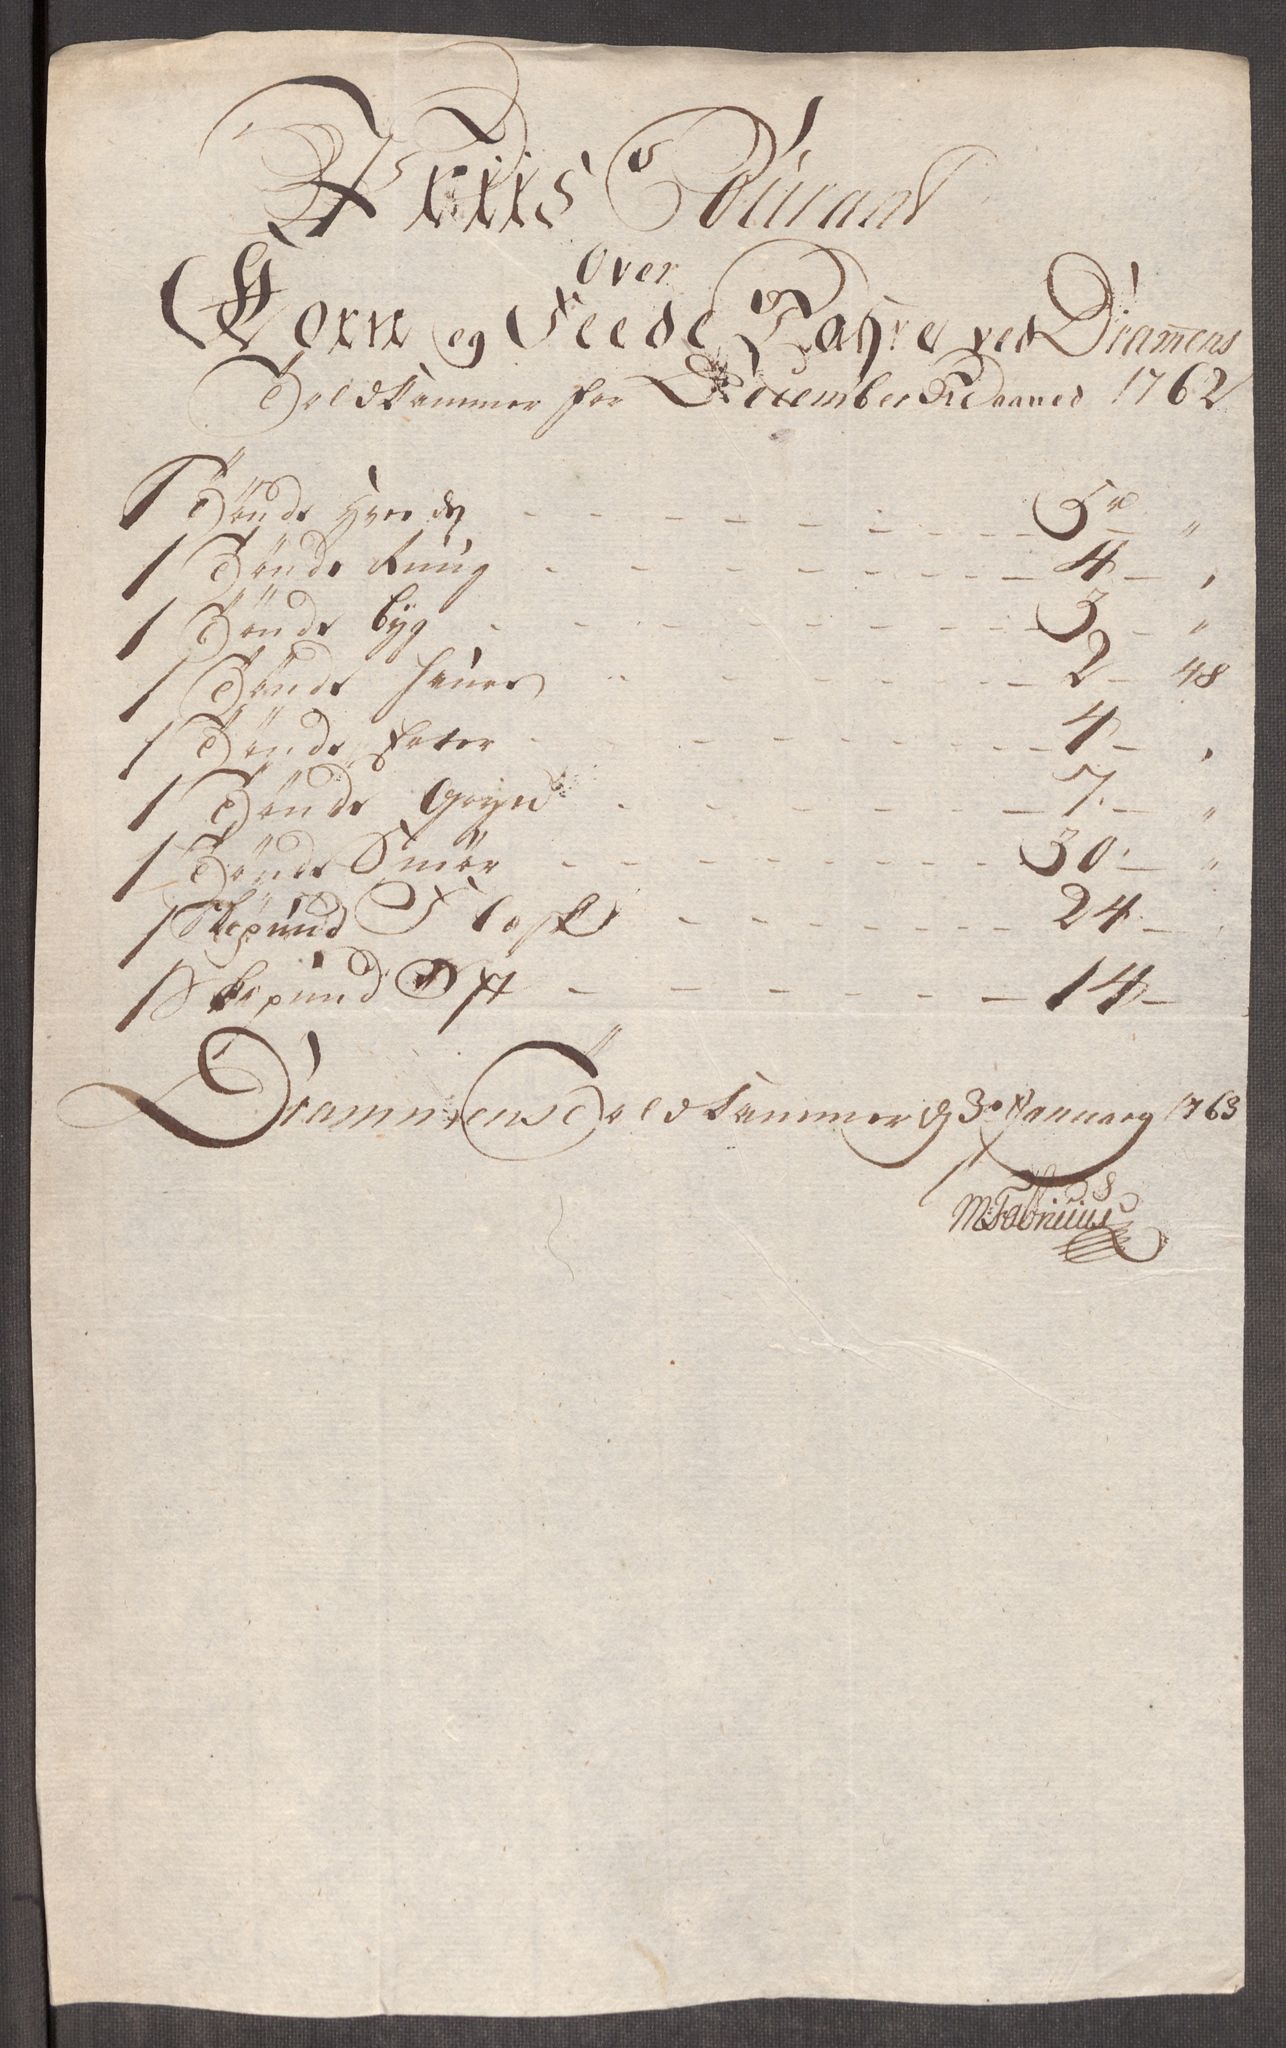 Priis Courant
Over
Korn og Feede Vahre ved Dram̅ens
Toldkammer for December Maaned 1762
1 Tönde Hvede - - - 5 rd "
1 Tönde Rüug - - - 4 - "
1 Tönde Byg - - - 3 - "
1 Tönde Haver - - - 2 - 48
1 Tönde Erter - - - 4 - "
1 Tönde Gryn - - - 7. - "
1 Tönde Smör - - - 30. - "
1 Skepünd Flesk - - - 24. -
1 Skepünd Ost - - - 14. -
Drammens Toldkammer d 3. January 1763
M: Fabricius